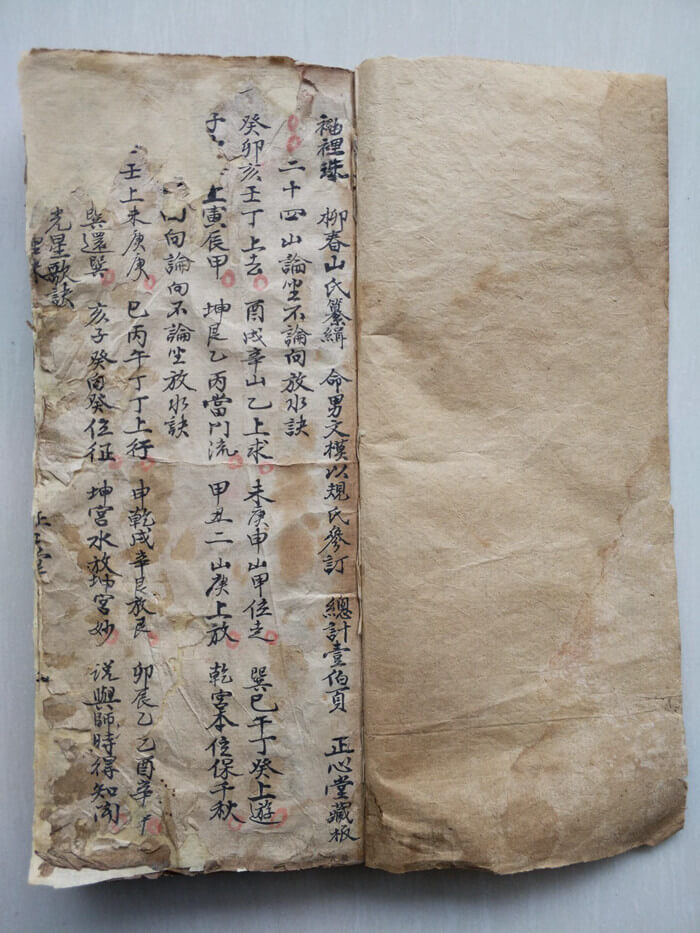 袖裡珠 柳春山氏纂緝 命男文模以規氏參訂 總計壹佰頁 正心堂藏板
二十四山論坐不論向放水訣
癸卯亥壬丁上去 酉戌辛山乙上求 未庚申山甲位走 巽巳午丁癸上遊
子 上寅辰甲 坤艮乙丙當門流 甲丑二山庚上放 乾宮本位保千秋
向論向不論坐放水訣
壬上未庚庚 巳丙午丁丁上行 申乾戌辛艮放艮 卯辰乙乙酉辛
巽還巽 亥子癸向癸位征 坤宮水放坤宮妙 說與師時得知聞
光星歌訣